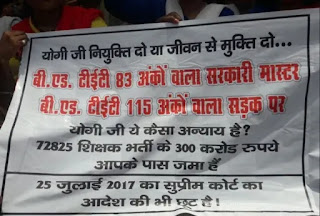 योगी जी नियुक्ति दो या जीवन से मुक्ति दो...
बी.एड. टीईटी 83 अंकों वाला सरकारी मास्टर
बी.एड. टीईटी 115 अंकों वाला सड़क पर
योगी जी ये कैसा अन्याय है?
72825 शिक्षक भर्ती के 300 करोड रुपये
आपके पास जमा हैं
25 जुलाई 2017 का सुप्रीम कोर्ट का
आदेश की भी छूट है!